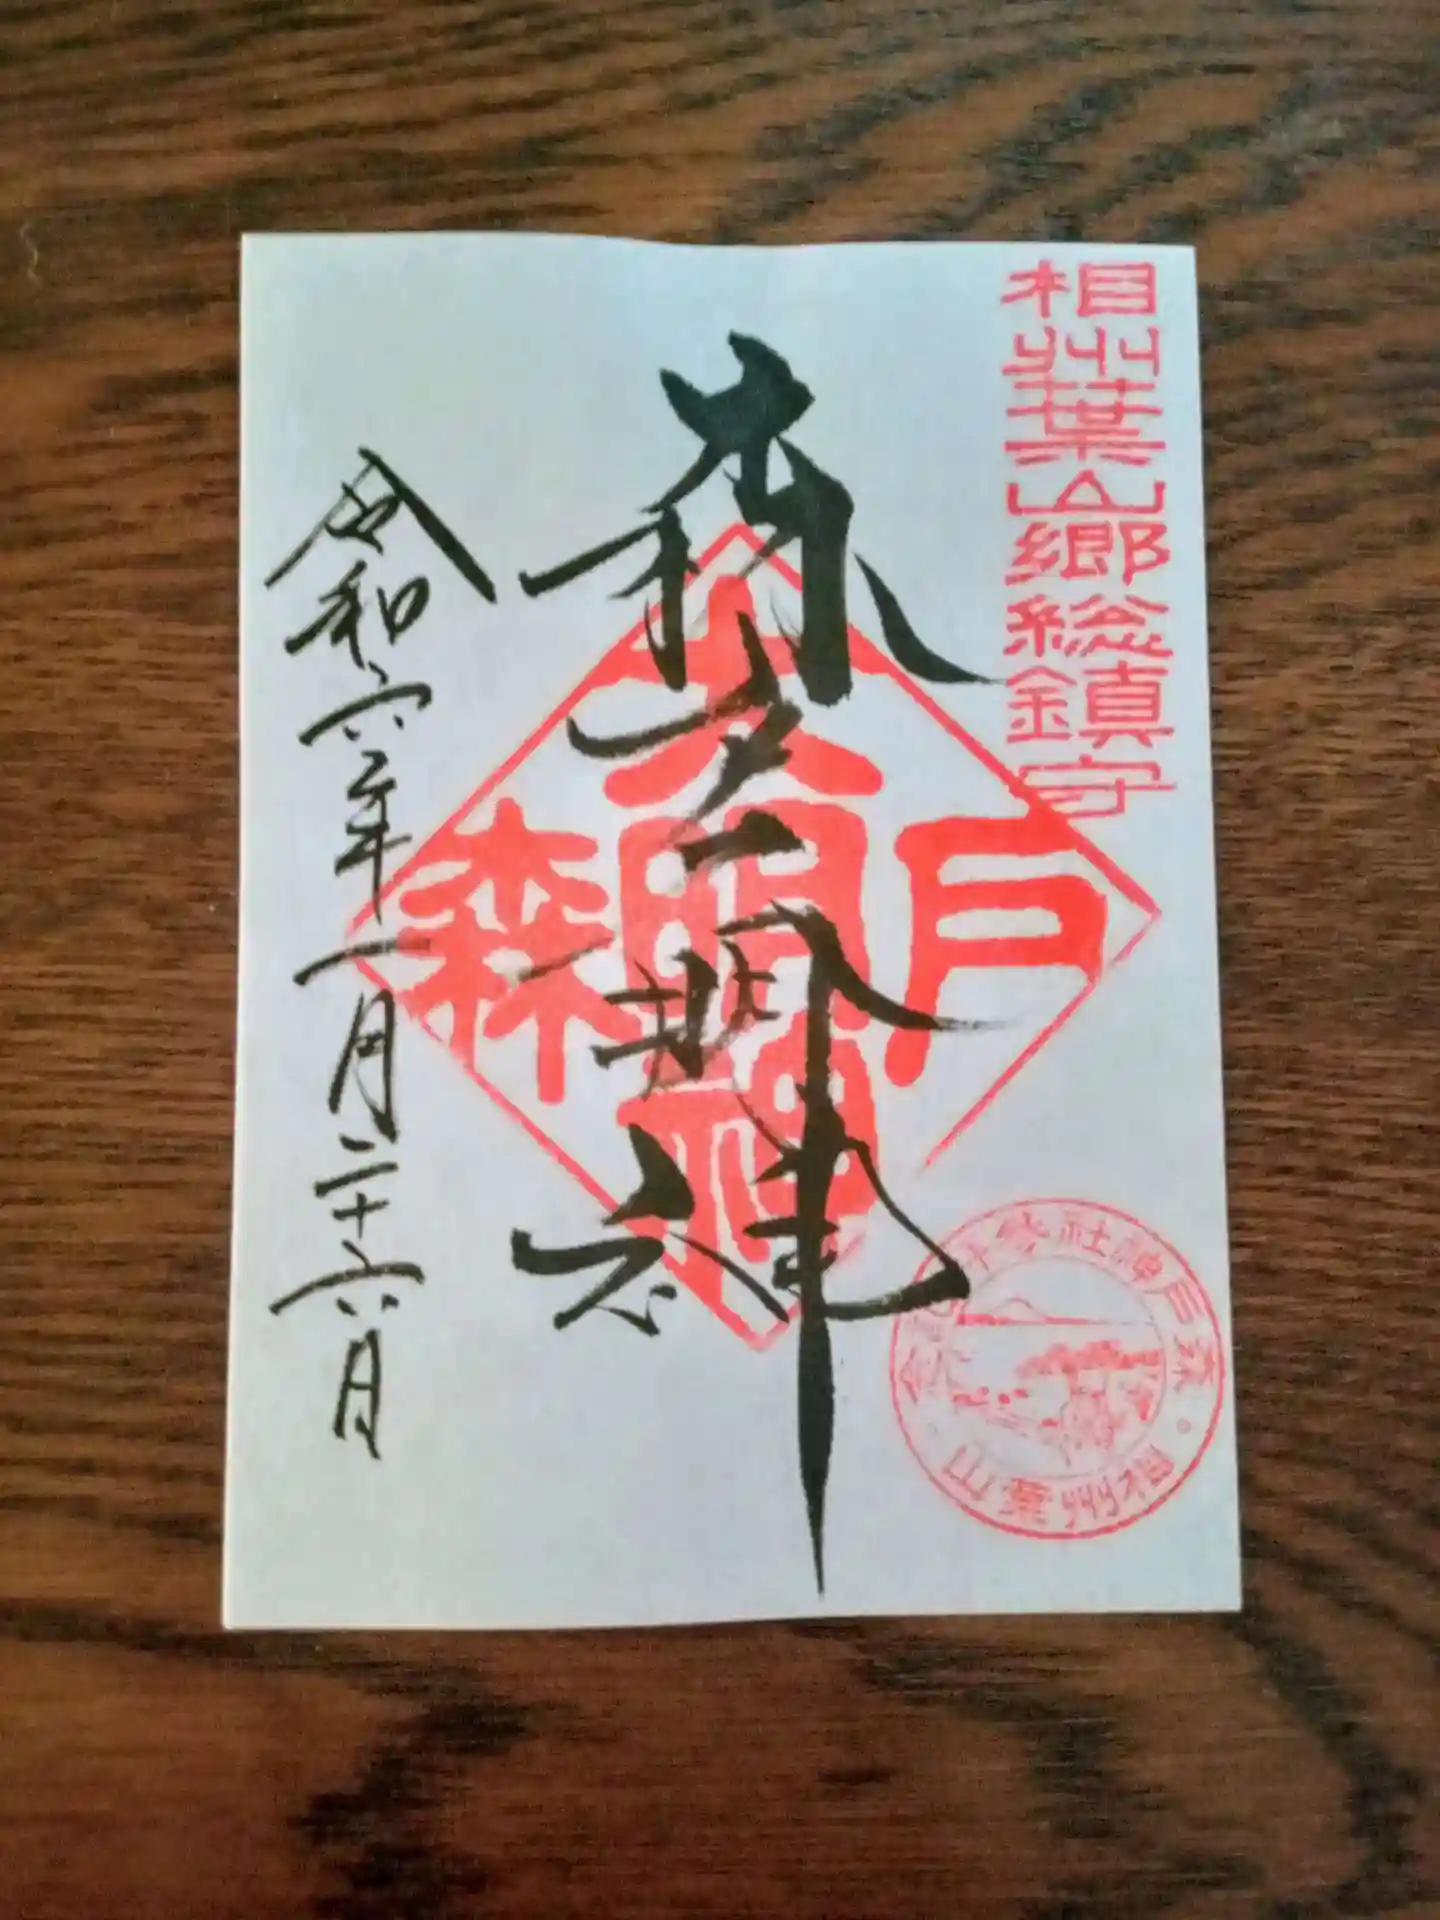 相州葉山郷総鎮守
森戸大明神
大
森明戸
神
令和六年一月二十六日
森戸神社
相州葉山